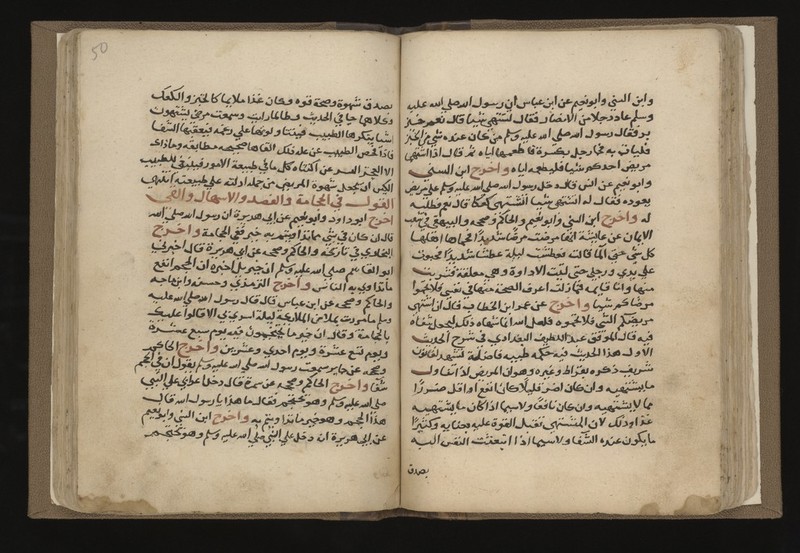 وابن السني وأبو نعيم عن ابن عباس أن رسول الله صلى الله عليه
وسلم عاد رجلا من الأنصار فقال له تشتهي شيئا قال نعم خبز
بر فقال رسول الله صلى الله عليه وسلم من كان عنده شي من الخبز
فليات به فجا رجل بكسرة فاطعمها اياه ثم قال اذا اشتهى
مريض احدكم شيئا فليطعمه اياه واخرج ابن السني
وابو نعيم عن انس قال دخل رسول الله صلى الله عليه وسلم على مريض
يعوده فقال له اتشتهي شيئا اتشتهي كعكا قال نعم فطلبه
له واخرج ابن السني وابو نعيم والحاكم وصححه والبيهقي في شعب
الايمان عن عايشة انها مرضت مرضا شديدا فحماها اهلها
كل شي حتى الما قالت فعطشت ليلة عطشا شديدا فحبوت
على يدي ورجلي حتى اتيت الاداوة وهي معلقة فشربت
منها وانا قايمة فما زلت اعرف الصحة منها في نفسي فلا تحموا
مرضاكم شيا واخرج عن عمر ابن الخطاب قال اذا اشتهى
مريضكم الشي فلا تحموه فلعل الله انما شهاه ذلك ليجعل شفاه
فيه قال الموفق عبد اللطيف البغدادي في شرح الحديث
الاول هذا الحديث فيه حكمة طبيه فاضلة تشهد لقانون
شريف ذكره بقراط وغيره وهو ان المريض اذا تناول
ما يشتهيه وان كان اضر قليلا كان انفع او اقل ضررا
مما لا يشتهيه وان كان نافعا ولاسيما اذا كان ما يشتهيه
غذا وذلك لان المشتهى تقبل القوة عليه بعنايه وكثيرا
ما يكون عنده الشفا ولاسيما اذا انبعثت النفس اليه
بصدق
50
بصدق شهوة وصحة قوه وكان غذا ملايما كالخبز والكعك
وكلاهما جا في الحديث وطالما رايت وسمعت مرضى يشتهون
اشيا ينكرها الطبيب فيتناولونها على رغمه فيعقبها الشفا
فاذا فحص الطبيب عن علة ذلك الفاها صحيحه مطابقه وما ذاك
الا العجز البشر عن اكتناه كل ما في طبيعة الامور فينبغي للطبيب
الكيس ان يجعل شهوة المريض من جملة ادلته على طبيعته انتهى
القول في الحجامة والفصد والاسهال والقي
اخرج ابو داود وابو نعيم عن ابي هريرة ان رسول الله صلى الله
قال ان كان في شي مما تداويتم به خير ففي الحجامة واخرج
البخاري في تاريخه والحاكم وصححه عن ابي هريرة قال اخبرني
ابو القاسم صلى الله عليه وسلم ان جبريل اخبره ان الحجم انفع
ما تداوى به الناس واخرج الترمذي وحسنه وابن ماجه
والحاكم وصححه عن ابن عباس قال قال رسول الله صلى الله عليه
وسلم ما مررت بملا من الملايكة ليلة اسري بي الا قالوا عليك
بالحجامة وقال ان خير ما تحتجمون فيه يوم سبع عشرة
ويوم تسع عشرة ويوم احدى وعشرين واخرج الحاكم
وصححه عن جابر سمعت رسول الله صلى الله عليه وسلم يقول ان في الحجم
شفا واخرج الحاكم وصححه عن سمرة قال دخل اعرابي على النبي
صلى الله عليه وسلم وهو يحتجم فقال ما هذا يا رسول الله قال
هذا الحجم وهو خير ما تداويتم به واخرج ابن السني وابو نعيم
عن ابي هريرة انه دخل على النبي صلى الله عليه وسلم وهو يحتجم